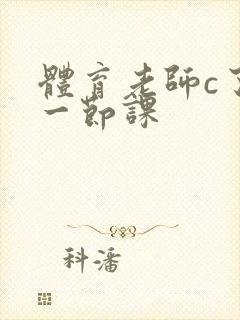 體育老師c了
一節課
科潘